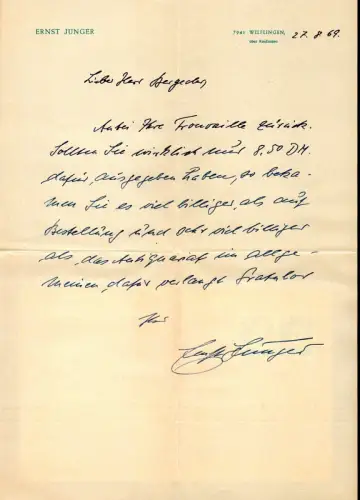 ERNST JÜNGER
7941 WILFLINGEN, 27. 8. 69.
über Riedlingen
Lieber Herr
Anbei Ihre Trouvaille zurück.
Sollten Sie wirklich nur 8.50 DM.
dafür, ausgegeben haben, so beka-
men Sie es viel billiger, als auf
Bestellung und sehr viel billiger
als, das Antiquariat im allge-
meinen, dafür verlangt. Gratulor
Ihr
Ernst Jünger